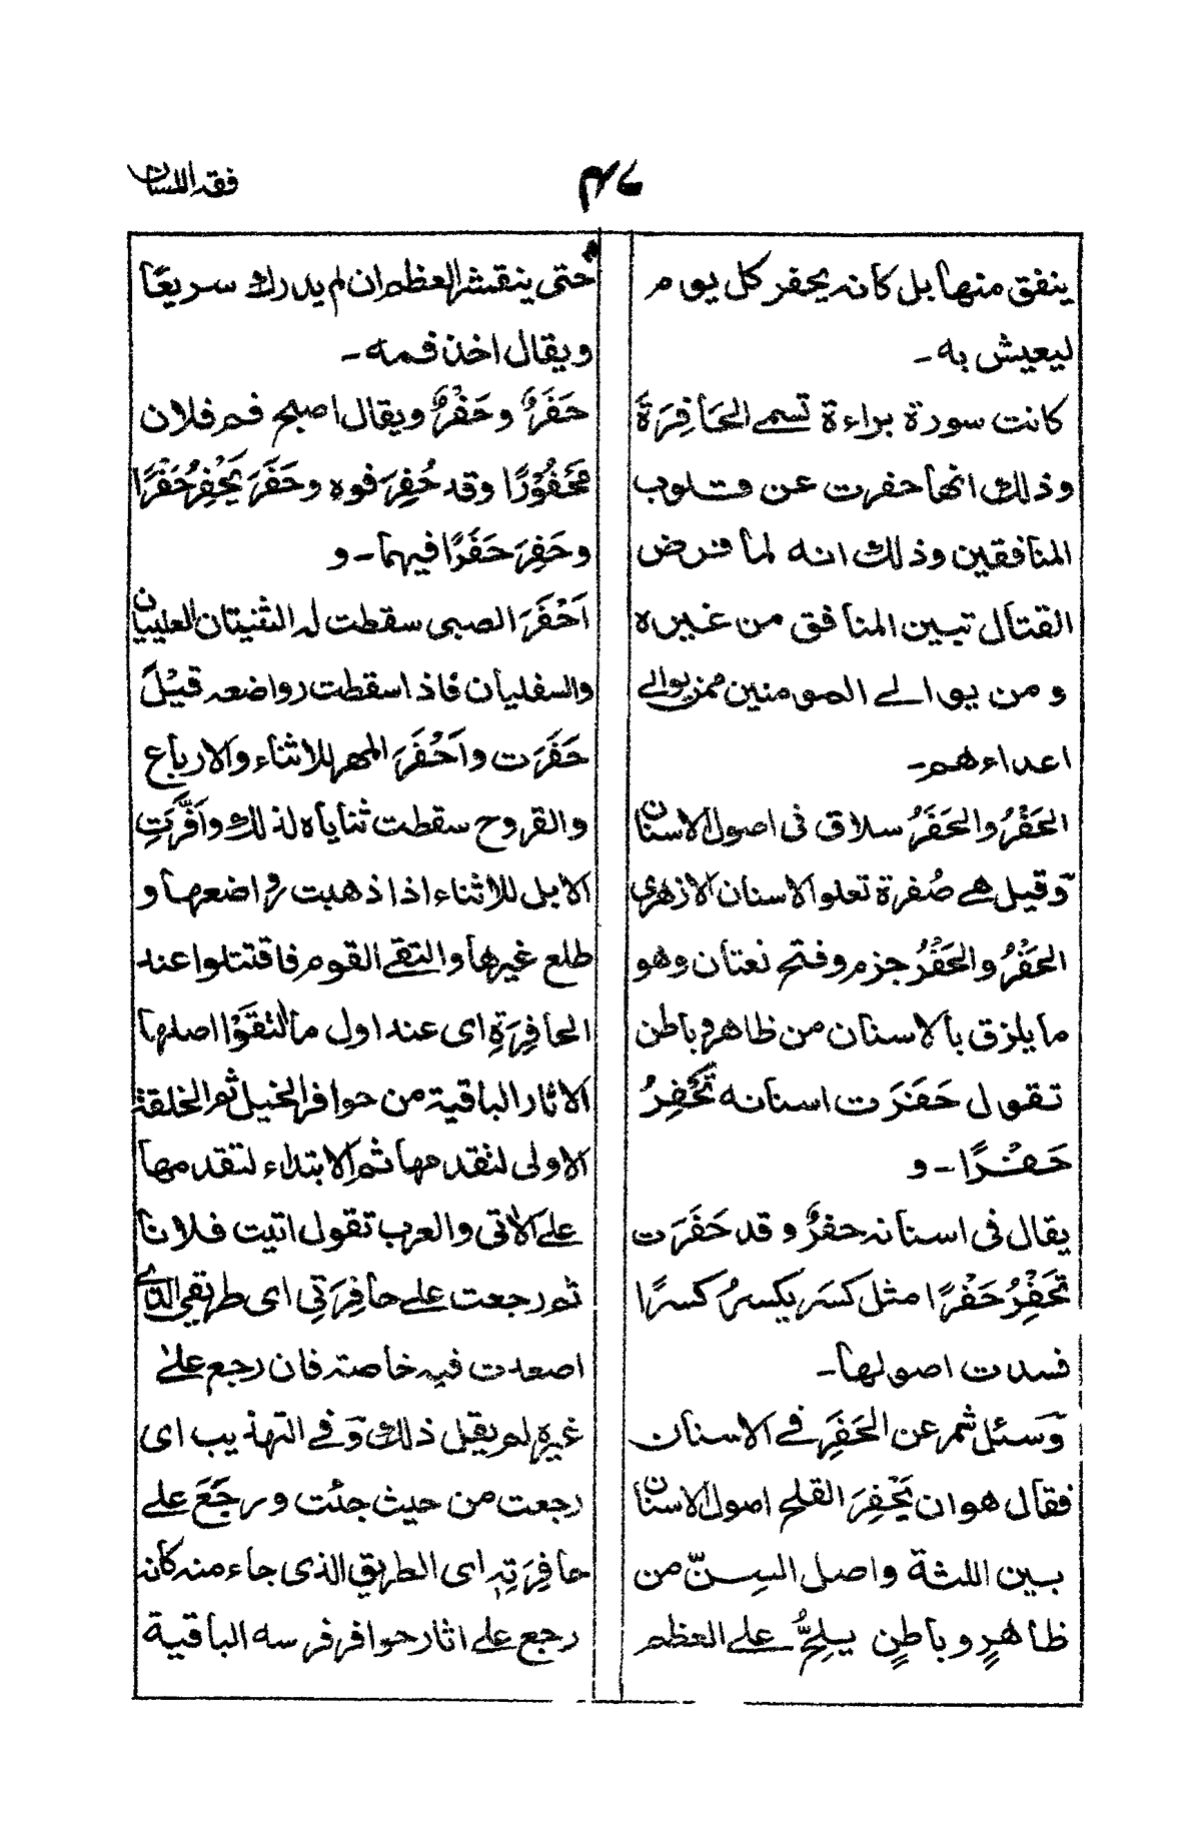 فقه اللسان
ينفق منها بل كانه يحفر كل يوم
ليعيش به ـ
كانت سورة براءة تسمے الحَافِرَةَ
وذلك انها حفرت عن قلوب
المنافقين وذلك انه لما فرض
القتال تبين المنافق من غيره
ومن يوالے المومنين ممن يوالے
اعداءهم ـ
الحَفْرُ والحَفَرُ سلاق فى اصول الاسنان
وقيل هے صُفرة تعلو الاسنان الازهرى
الحَفْرُ والحَفَرُ جزم وفتح نعتان وهو
ما يلزق بالاسنان من ظاهر وباطن
تقول حَفَرَت اسنانه تَحْفِرُ
حَفْرًا ـ و
يقال فى اسنانه حفرٌ وقد حَفَرَت
تَحْفِرُ حَفْرًا مثل كسَر يكسرُ كسرًا
فسدت اصولها ـ
وسئل شمر عن الحَفَرِ فے الاسنان
فقال هو ان يَحْفِرَ القلح اصول الاسنان
بين اللثة واصل السِنّ من
ظاهرٍ وباطنٍ يلحُّ علے العظم
حتى ينقشر العظم ان لم يدرك سريعًا
ويقال اخذ فمه ـ
حَفَرٌ وحَفْرٌ ويقال اصبح فم فلان
مَحْفُوْرًا وقد حُفِرَ فوه وحَفَرَ يَحْفِرُ حَفْرًا
وحَفِرَ حَفَرًا فيهما ـ و
اَحْفَرَ الصبى سقطت له الثنيتان العليان
والسفليان فاذا سقطت رواضعه قيْلَ
حَفَرَت واَحْفَرَ المهر للاثناء والارباع
والقروح سقطت ثناياه لذلك واَفَرَّتِ
الابل للاثناء اذا ذهبت رواضعها و
طلع غيرها والتقے القوم فاقتتلوا عند
الحافِرَةِ اى عند اول ما التقَوْا اصلها
الاثار الباقية من حوافر الخيل ثم الخلقة
الاولى لتقدمها ثم الابتداء لتقدمها
علے الاٰتى والعرب تقول اتيت فلانا
ثم رجعت علے حافِرَتِى اى طريقى الذے
اصعدت فيه خاصته فان رجع علے
غيره لم يقل ذلك وفے التهذيب اى
رجعت من حيث جئت ورجَعَ علے
حافِرَتِهٖ اى الطريق الذى جاء منه كانه
رجع علے اثار حوافر فرسه الباقية